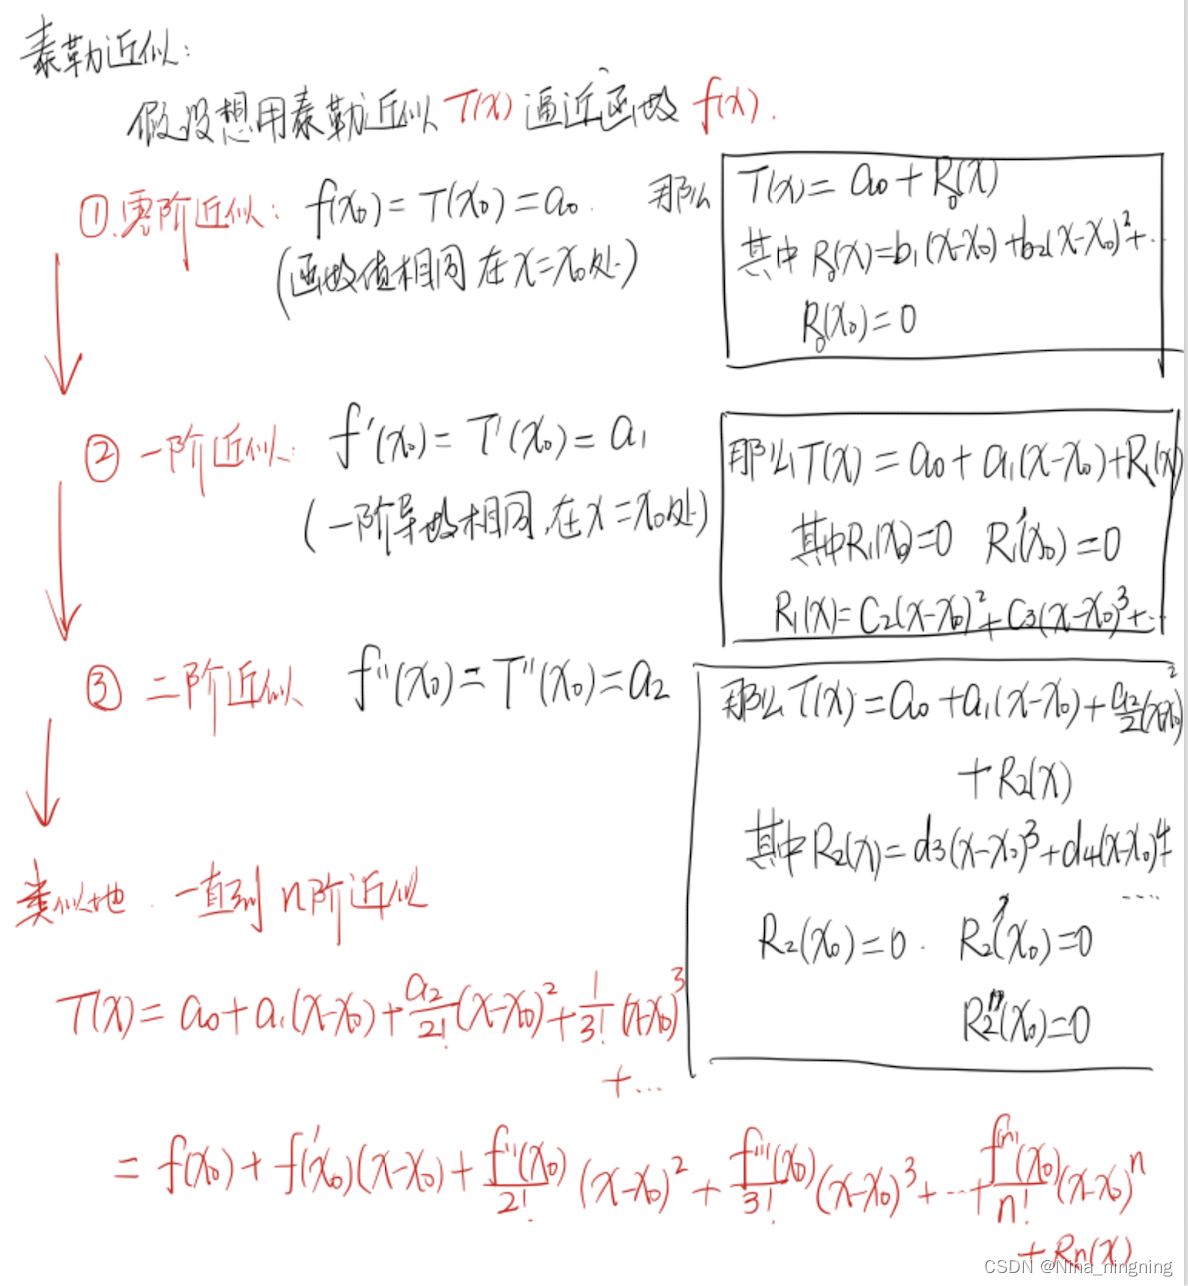 泰勒近似:
假设想用泰勒近似 T(x) 逼近函数 f(x).
①.零阶近似: f(x₀) = T(x₀) = a₀. 那么
(函数值相同 在 x = x₀处)
T(x) = a₀ + R₀(x)
其中 R₀(x) = b₁(x-x₀) + b₂(x-x₀)² + ...
R₀(x₀) = 0
② 一阶近似: f'(x₀) = T'(x₀) = a₁
(一阶导数相同, 在 x = x₀处)
那么 T(x) = a₀ + a₁(x-x₀) + R₁(x)
其中 R₁(x₀) = 0 R₁'(x₀) = 0
R₁(x) = C₂(x-x₀)² + C₃(x-x₀)³ + ...
③ 二阶近似 f''(x₀) = T''(x₀) = a₂
那么 T(x) = a₀ + a₁(x-x₀) + a₂/2 (x-x₀)²
+ R₂(x)
其中 R₂(x) = d₃(x-x₀)³ + d₄(x-x₀)⁴ +
....
R₂(x₀) = 0. R₂'(x₀) = 0
R₂''(x₀) = 0
类似地. 一直到 n阶近似
T(x) = a₀ + a₁(x-x₀) + a₂/2! (x-x₀)² + 1/3! (x-x₀)³
+ ...
= f(x₀) + f'(x₀)(x-x₀) + f''(x₀)/2! (x-x₀)² + f'''(x₀)/3! (x-x₀)³ + ... + f⁽ⁿ⁾(x₀)/n! (x-x₀)ⁿ
+ Rn(x)
CSDN @Nina_ningning